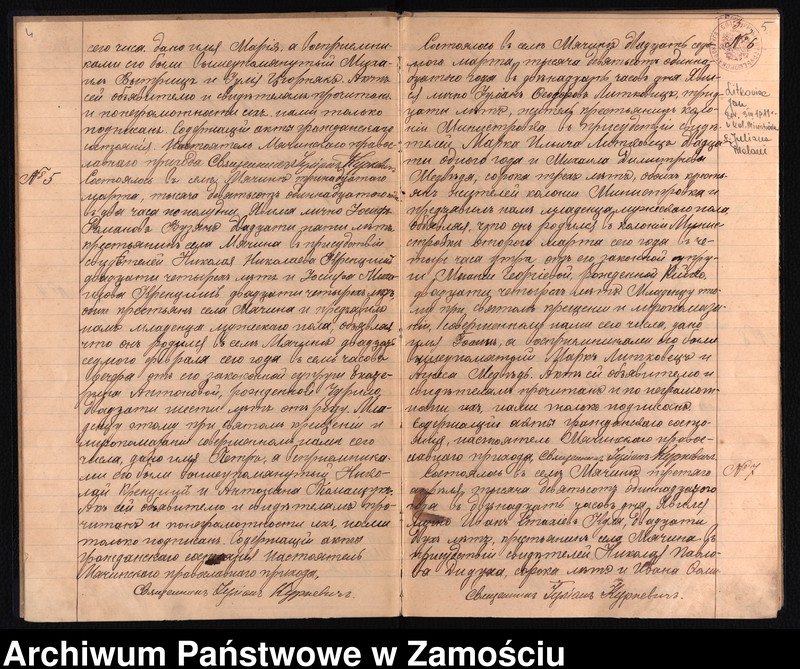 сего числа. дано имя Марія, а воспріемни-
ками его были вышеупомянутый Миха-
илъ и Юлія. Актъ
сей объявителю и свидѣтелямъ прочитанъ
и по неграмотности ихъ нами только
подписанъ. Содержащій акты гражданскаго
состоянія Настоятель Мячинскаго право-
славнаго прихода Священникъ Куркевичъ
№ 5
Состоялось въ селѣ Мячинѣ тринадцатаго
марта, тысяча девятьсотъ одиннадцатаго года
въ два часа пополудни. Явился лично Іосифъ
двадцати пяти лѣтъ
крестьянинъ села Мячина въ присутствіи
свидѣтелей Николая Николаева
двадцати четырехъ лѣтъ и Іосифа
двадцати четырехъ лѣтъ,
крестьянъ села Мячина и предъявилъ
намъ младенца мужескаго пола, объявляя,
что онъ родился въ селѣ Мячинѣ двадцать
седьмого февраля сего года въ семь часовъ
вечера отъ его законной супруги Екате-
рины Антоновой, рожденной
двадцати шести лѣтъ отъ роду. Мла-
денцу этому при святомъ крещеніи и
миропомазаніи совершенномъ нами сего
числа, дано имя Петръ, а воспріемника-
ми его были вышеупомянутый Нико-
лай и Антонина
Актъ сей объявителю и свидѣтелямъ про-
читанъ и по неграмотности ихъ, нами
только подписанъ. Содержащій акты
гражданскаго состоянія Настоятель
Мячинскаго православнаго прихода,
Священникъ Куркевичъ.
5
№ 6
Litkowiec
Jan
w kol.
Julianna
Состоялось въ селѣ Мячинѣ двадцать седь-
мого марта, тысяча девятьсотъ одинна-
дцатаго года въ двѣнадцать часовъ дня. Явил-
ся лично Литковецъ, трид-
цати лѣтъ, крестьянинъ коло-
ніи Министровка въ присутствіи свидѣ-
телей Марка Ильича Литковецъ двадца-
ти одного года и Михаила Димитріева
Медвѣдя, сорока трехъ лѣтъ, обоихъ кресть-
янъ жителей колоніи Министровка и
предъявилъ намъ младенца мужескаго пола,
объявляя, что онъ родился въ колоніи Мини-
стровка второго марта сего года въ че-
тыре часа утра, отъ его законной супру-
ги Георгіевой, рожденной
двадцати четырехъ лѣтъ. Младенцу это-
му при святомъ крещеніи и миропомаза-
ніи, совершенному нами сего числа, дано
имя Іоаннъ, а воспріемниками его были
вышеупомянутый Марко Литковецъ и
Медвѣдь. Актъ сей объявителю и
свидѣтелямъ прочитанъ и по неграмот-
ности ихъ, нами только подписанъ.
Содержащій акты гражданскаго состо-
янія, настоятель Мячинскаго право-
славнаго прихода, Священникъ Куркевичъ.
№ 7
Состоялось въ селѣ Мячинѣ третьяго
апрѣля, тысяча девятьсотъ одиннадцатого
года въ двѣнадцать часовъ дня. Явился
лично Иванъ двадцати
двухъ лѣтъ, крестьянинъ села Мячина въ
присутствіи свидѣтелей Николая Павло-
ва Дидуха, сорока лѣтъ и Ивана
Священникъ Куркевичъ.
Archiwum Państwowe w Zamościu